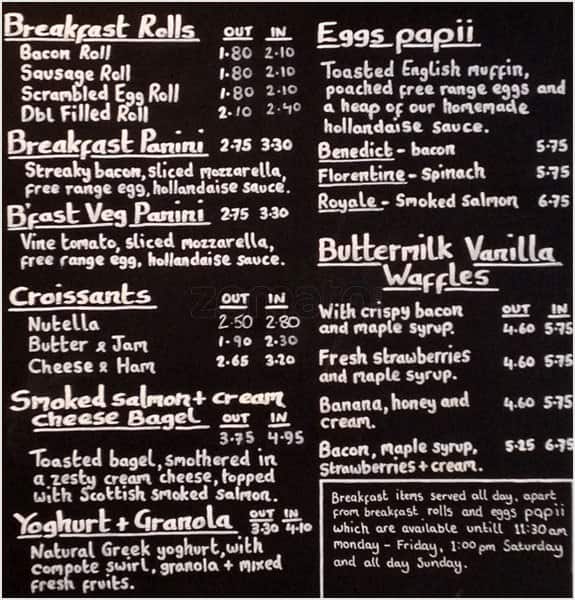 Breakfast Rolls OUT IN
Bacon Roll 1.80 2.10
Sausage Roll 1.80 2.10
Scrambled Egg Roll 1.80 2.10
Dbl Filled Roll 2.10 2.40
Breakfast Panini 2.75 3.30
Streaky bacon, sliced mozzarella,
free range egg, hollandaise sauce.
B'fast Veg Panini 2.75 3.30
Vine tomato, sliced mozzarella,
free range egg, hollandaise sauce.
Croissants OUT IN
Nutella 2.50 2.80
Butter & Jam 1.90 2.30
Cheese & Ham 2.65 3.20
Smoked salmon + cream
cheese Bagel OUT IN
3.75 4.95
Toasted bagel, smothered in
a zesty cream cheese, topped
with Scottish smoked salmon.
Yoghurt + Granola OUT IN
3.30 4.10
Natural Greek yoghurt, with
compote swirl, granola + mixed
fresh fruits.
Eggs papii
Toasted English muffin,
poached free range eggs and
a heap of our homemade
hollandaise sauce.
Benedict - bacon 5.75
Florentine - Spinach 5.75
Royale - Smoked Salmon 6.75
Buttermilk Vanilla
Waffles
With crispy bacon OUT IN
and maple syrup. 4.60 5.75
Fresh strawberries 4.60 5.75
and maple syrup.
Banana, honey and 4.60 5.75
cream.
Bacon, maple syrup, 5.25 6.75
Strawberries + cream.
Breakfast items served all day, apart
from breakfast rolls and eggs papii
which are available untill 11:30am
monday - Friday, 1:00pm Saturday
and all day Sunday.
zomato